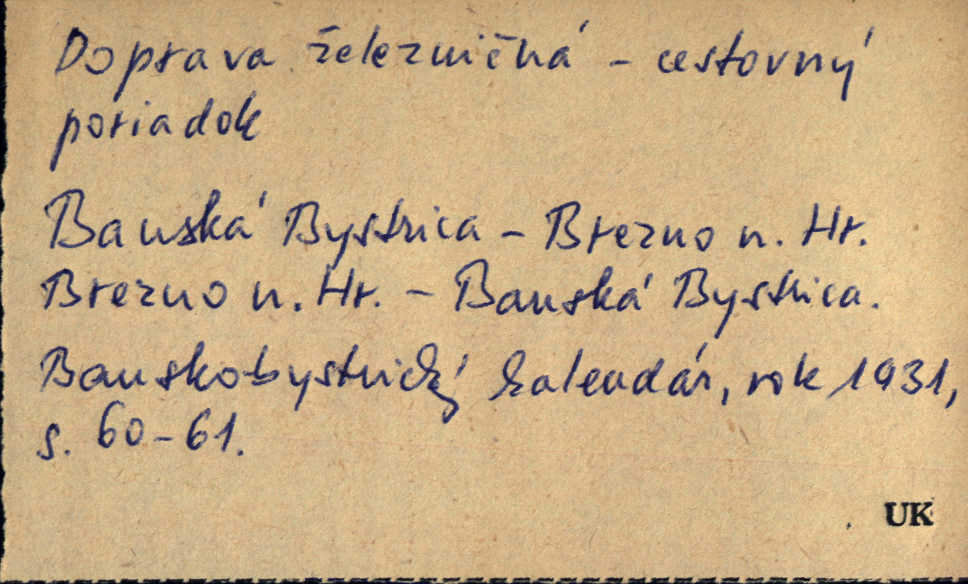 Doprava železničná - cestovný
poriadok
Banská Bystrica - Brezno n. Hr.
Brezno n. Hr. - Banská Bystrica.
Banskobystrický kalendár, rok 1931,
s. 60-61.
UK